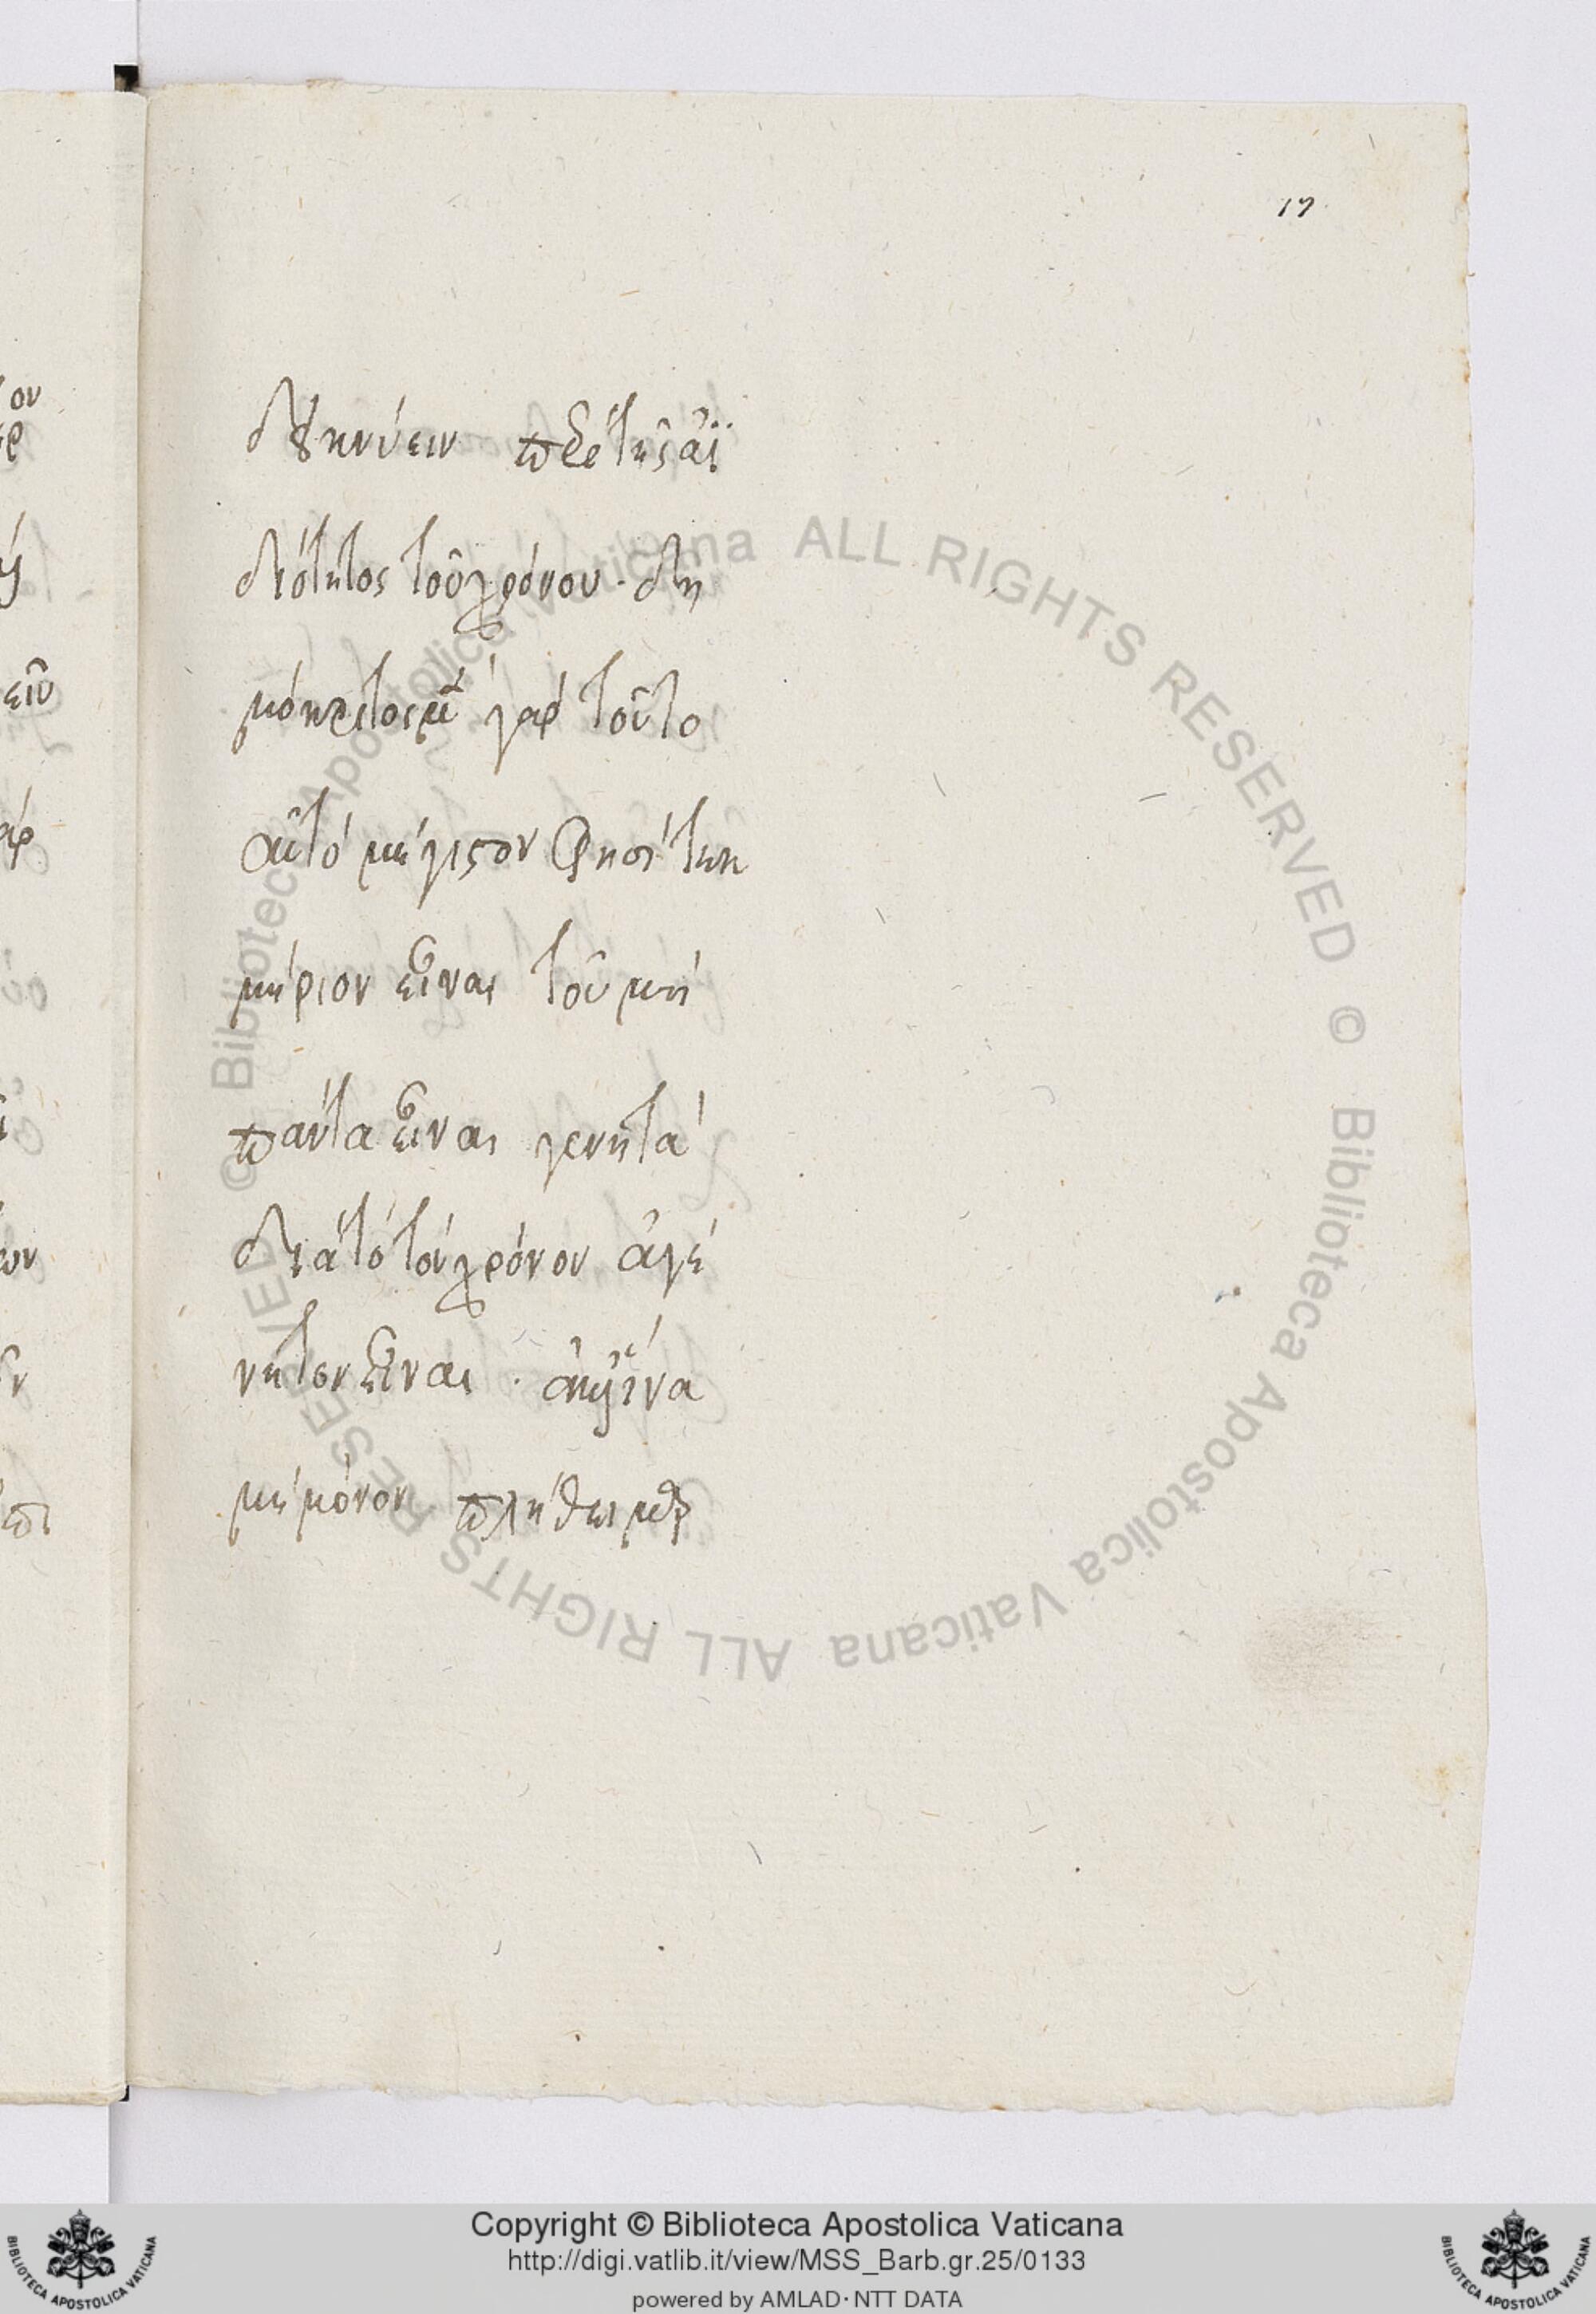 17
δεικνύειν περὶ τῆς ἀϊ
διότητος τοῦ χρόνου· δη
μόκριτος μὲν γὰρ τοῦτο
αὐτὸ μέγιστον φησὶ τεκ
μήριον εἶναι τοῦ μὴ
πάντα εἶναι γενητὰ
διὰ τὸ τὸν χρόνον ἀγέ
νητον εἶναι· ἵνα
μὴ μόνον πλήθει
© Biblioteca Apostolica Vaticana ALL RIGHTS RESERVED © Biblioteca Apostolica Vaticana ALL RIGHTS RESERVED
Copyright © Biblioteca Apostolica Vaticana
http://digi.vatlib.it/view/MSS_Barb.gr.25/0133
powered by AMLAD·NTT DATA
BIBLIOTECA APOSTOLICA VATICANA
BIBLIOTECA APOSTOLICA VATICANA